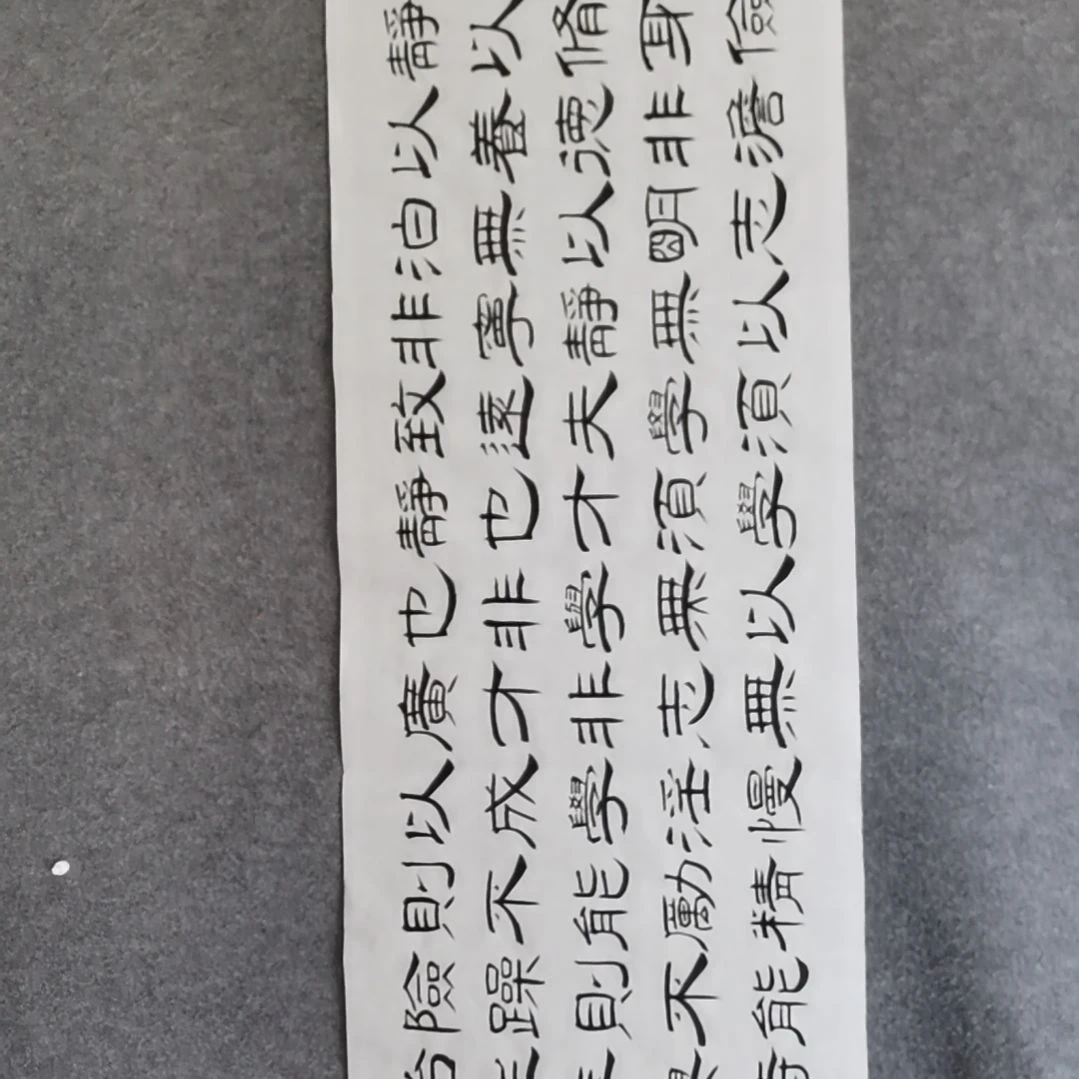 靜以脩身儉
以養德非澹
泊無以明志
非寧靜無以
致遠夫學須
靜也才須學
也非學無以
廣才非志無
以成學淫慢
則不能勵精
險躁則不能